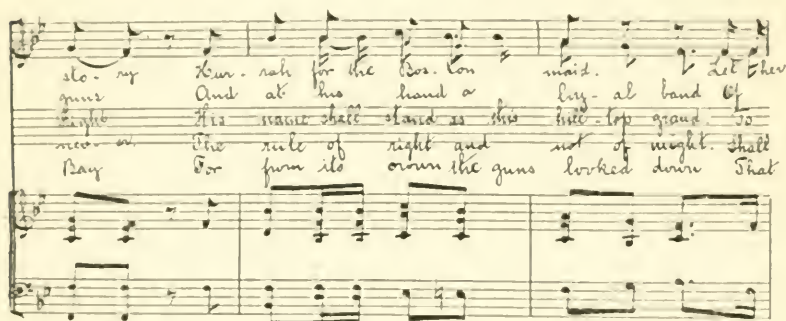 sto - ry Hur - rah for the Bos - ton maid. Let her
guns And at his hand a loy - al band Of
Light His name shall stand as this hill - top grand. To
nev - er. The rule of right and not of might. shall
Bay For from its crown the guns looked down That